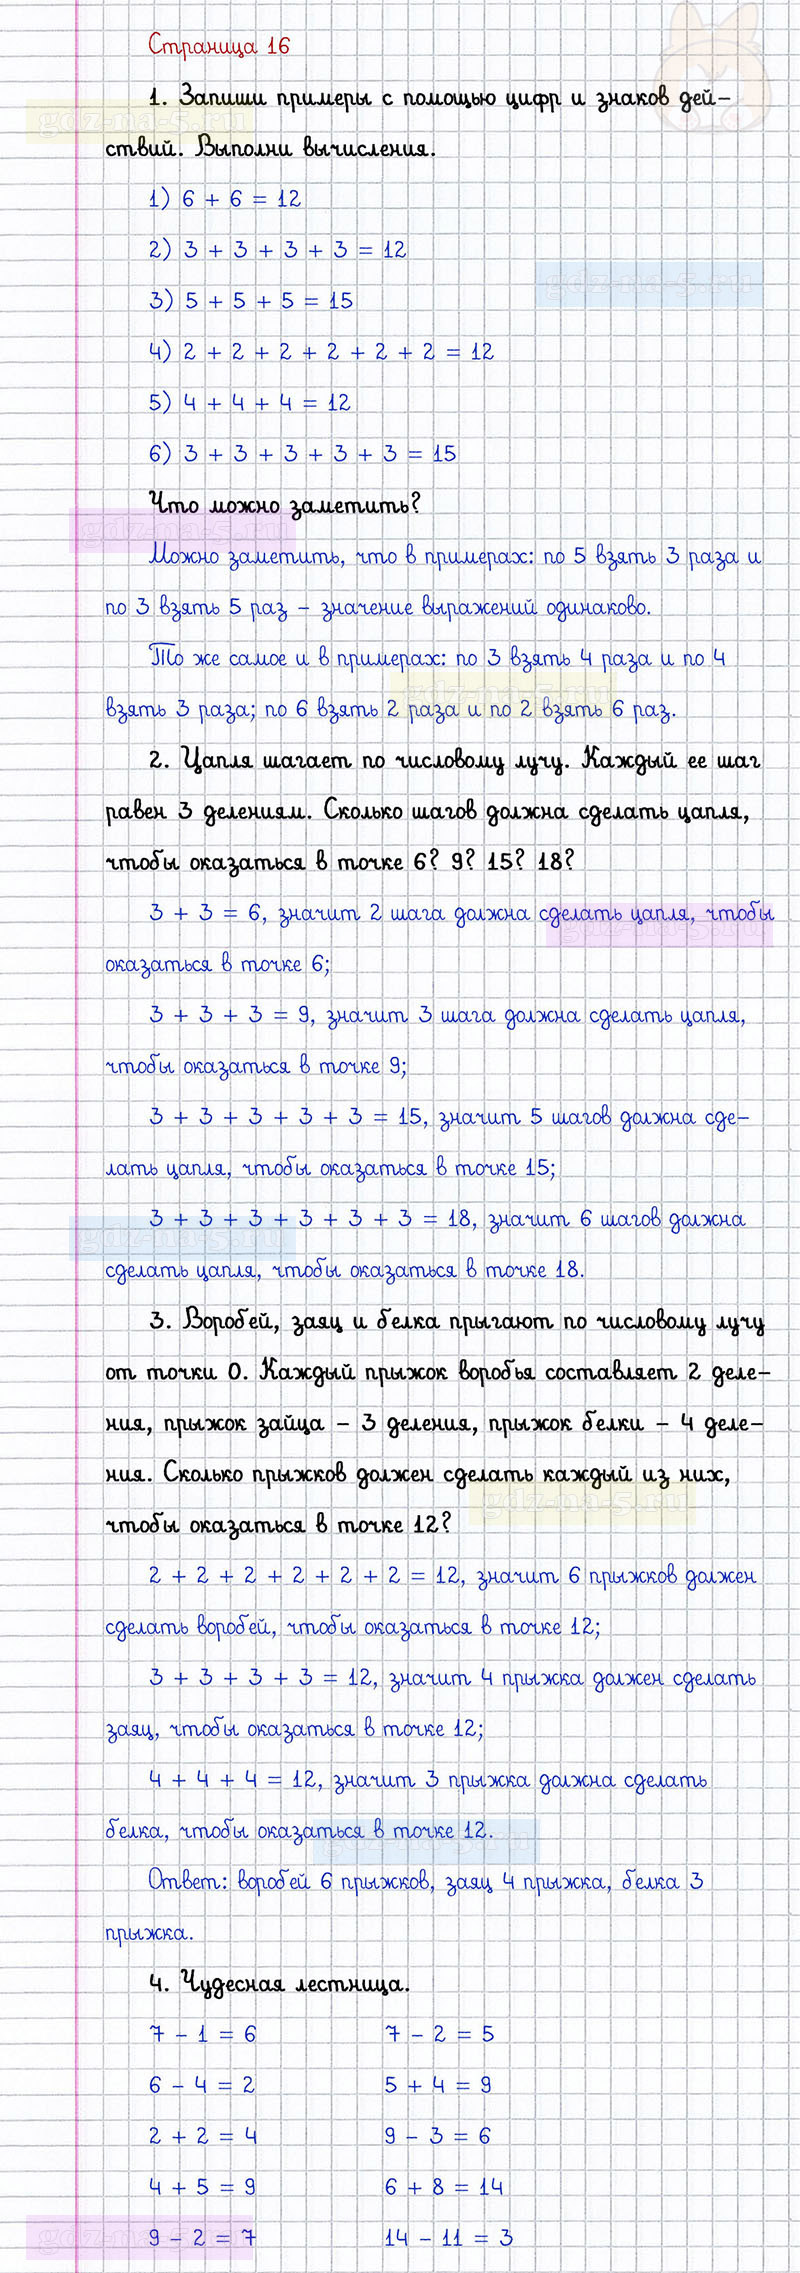 Страница 16
1. Запиши примеры с помощью цифр и знаков дей-
gdz-na-5.ru
ствий. Выполни вычисления.
1) 6 + 6 = 12
2) 3 + 3 + 3 + 3 = 12
gdz-na-5.ru
3) 5 + 5 + 5 = 15
4) 2 + 2 + 2 + 2 + 2 + 2 = 12
5) 4 + 4 + 4 = 12
6) 3 + 3 + 3 + 3 + 3 = 15
Что можно заметить?
gdz-na-5.ru
Можно заметить, что в примерах: по 5 взять 3 раза и
по 3 взять 5 раз – значение выражений одинаково.
То же самое и в примерах: по 3 взять 4 раза и по 4
gdz-na-5.ru
взять 3 раза; по 6 взять 2 раза и по 2 взять 6 раз.
2. Цапля шагает по числовому лучу. Каждый ее шаг
равен 3 делениям. Сколько шагов должна сделать цапля,
чтобы оказаться в точке 6? 9? 15? 18?
3 + 3 = 6, значит 2 шага должна сделать цапля, чтобы
gdz-na-5.ru
оказаться в точке 6;
3 + 3 + 3 = 9, значит 3 шага должна сделать цапля,
чтобы оказаться в точке 9;
3 + 3 + 3 + 3 + 3 = 15, значит 5 шагов должна сде-
лать цапля, чтобы оказаться в точке 15;
3 + 3 + 3 + 3 + 3 + 3 = 18, значит 6 шагов должна
gdz-na-5.ru
сделать цапля, чтобы оказаться в точке 18.
3. Воробей, заяц и белка прыгают по числовому лучу
от точки 0. Каждый прыжок воробья составляет 2 деле-
ния, прыжок зайца – 3 деления, прыжок белки – 4 деле-
ния. Сколько прыжков должен сделать каждый из них,
gdz-na-5.ru
чтобы оказаться в точке 12?
2 + 2 + 2 + 2 + 2 + 2 = 12, значит 6 прыжков должен
сделать воробей, чтобы оказаться в точке 12;
3 + 3 + 3 + 3 = 12, значит 4 прыжка должен сделать
заяц, чтобы оказаться в точке 12;
4 + 4 + 4 = 12, значит 3 прыжка должна сделать
белка, чтобы оказаться в точке 12.
gdz-na-5.ru
Ответ: воробей 6 прыжков, заяц 4 прыжка, белка 3
прыжка.
4. Чудесная лестница.
7 – 1 = 6 7 – 2 = 5
6 – 4 = 2 5 + 4 = 9
2 + 2 = 4 9 – 3 = 6
4 + 5 = 9 6 + 8 = 14
9 – 2 = 7 14 – 11 = 3
gdz-na-5.ru